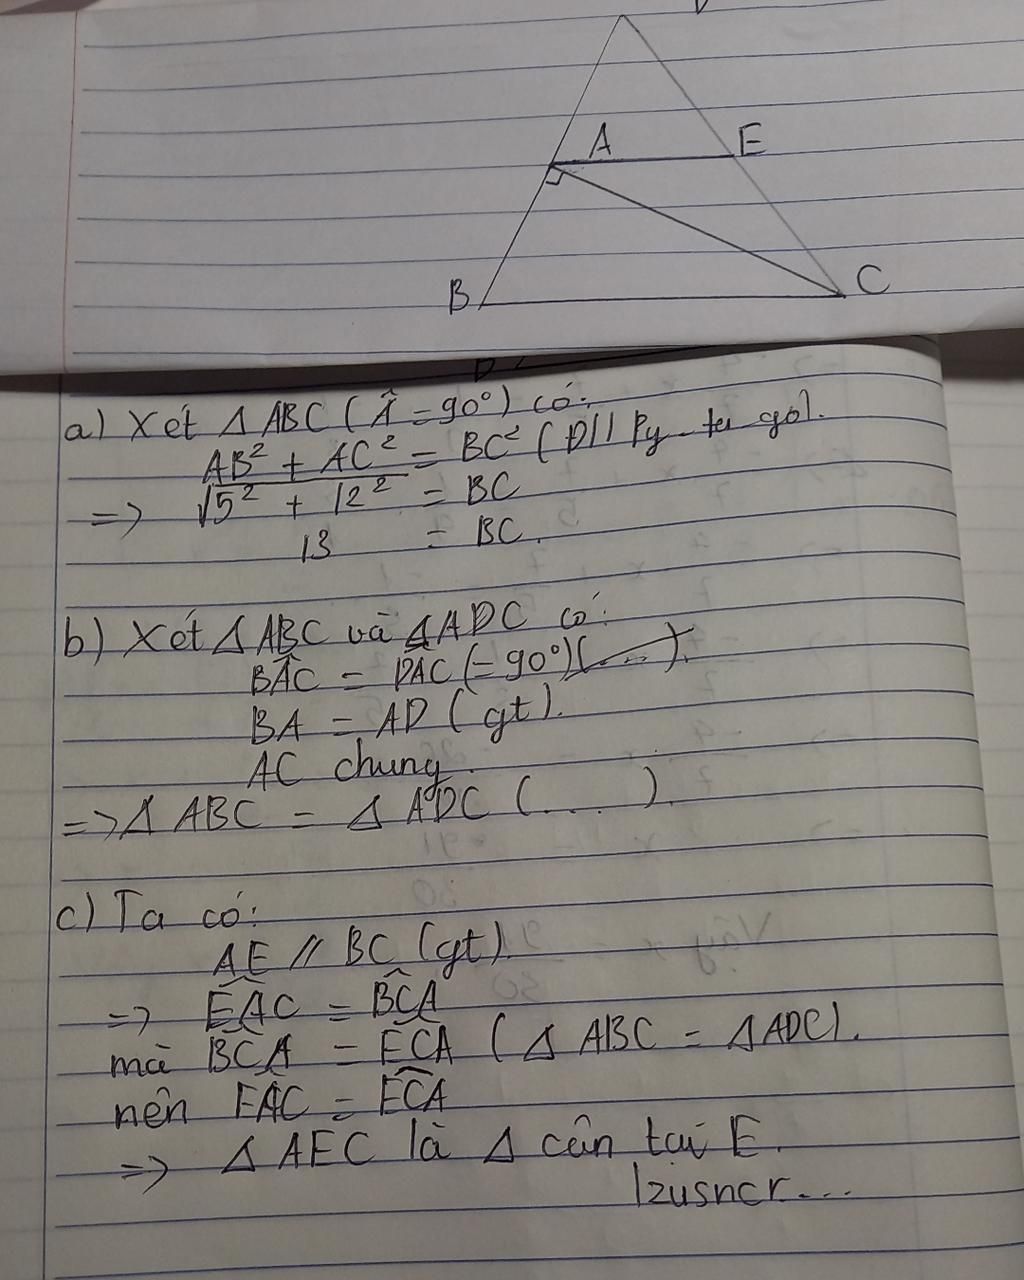 A
E
B
C
a) Xét Δ ABC ( Â = 90°) có:
AB² + AC² = BC² ( Đ// Py-ta go).
=> √5² + 12² = BC
13 = BC.
b) Xét Δ ABC và Δ ADC có:
BÂC = DÂC (= 90°)(....).
BA = AD ( gt).
AC chung.
=> Δ ABC = Δ ADC (....).
c) Ta có:
AE // BC (gt).
=> EÂC = BĈA
mà BĈA = EĈA ( Δ ABC = Δ ADC).
nên EÂC = EĈA
=> Δ AEC là Δ cân tại E.
Izusncr...